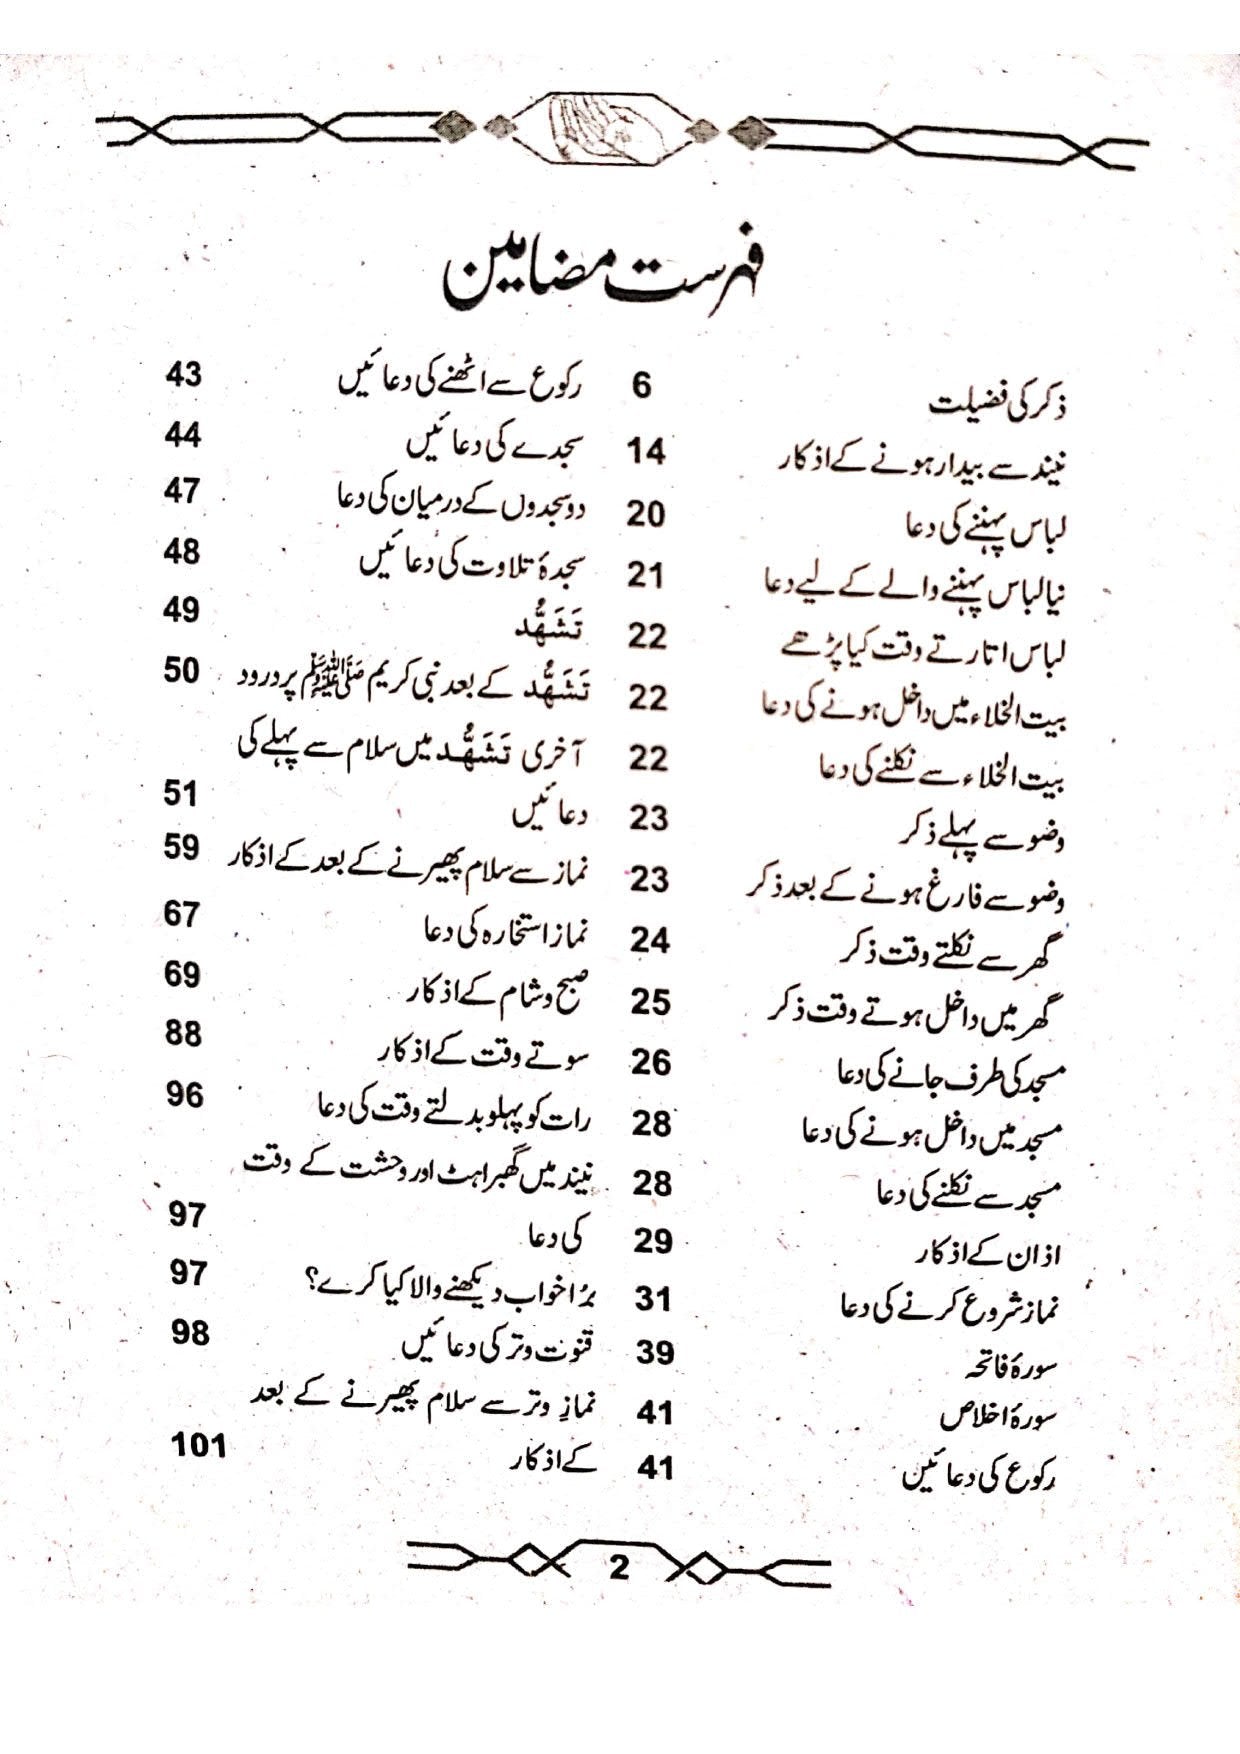 فہرست مضامین
ذکر کی فضیلت 6
نیند سے بیدار ہونے کے اذکار 14
لباس پہننے کی دعا 20
نیا لباس پہننے والے کے لیے دعا 21
لباس اتارتے وقت کیا پڑھے 22
بیت الخلاء میں داخل ہونے کی دعا 22
بیت الخلاء سے نکلنے کی دعا 22
وضو سے پہلے ذکر 23
وضو سے فارغ ہونے کے بعد ذکر 23
گھر سے نکلتے وقت ذکر 24
گھر میں داخل ہوتے وقت ذکر 25
مسجد کی طرف جانے کی دعا 26
مسجد میں داخل ہونے کی دعا 28
مسجد سے نکلنے کی دعا 28
اذان کے اذکار 29
نماز شروع کرنے کی دعا 31
سورۂ فاتحہ 39
سورۂ اخلاص 41
رکوع کی دعائیں 41
رکوع سے اٹھنے کی دعائیں 43
سجدے کی دعائیں 44
دو سجدوں کے درمیان کی دعا 47
سجدۂ تلاوت کی دعائیں 48
تَشَهُّد 49
تَشَهُّد کے بعد نبی کریم ﷺ پر درود 50
آخری تَشَهُّد میں سلام سے پہلے کی
دعائیں 51
نماز سے سلام پھیرنے کے بعد کے اذکار 59
نماز استخارہ کی دعا 67
صبح و شام کے اذکار 69
سوتے وقت کے اذکار 88
رات کو پہلو بدلتے وقت کی دعا 96
نیند میں گھبراہٹ اور وحشت کے وقت
کی دعا 97
بُرا خواب دیکھنے والا کیا کرے؟ 97
قنوت وتر کی دعائیں 98
نمازِ وتر سے سلام پھیرنے کے بعد
کے اذکار 101
2